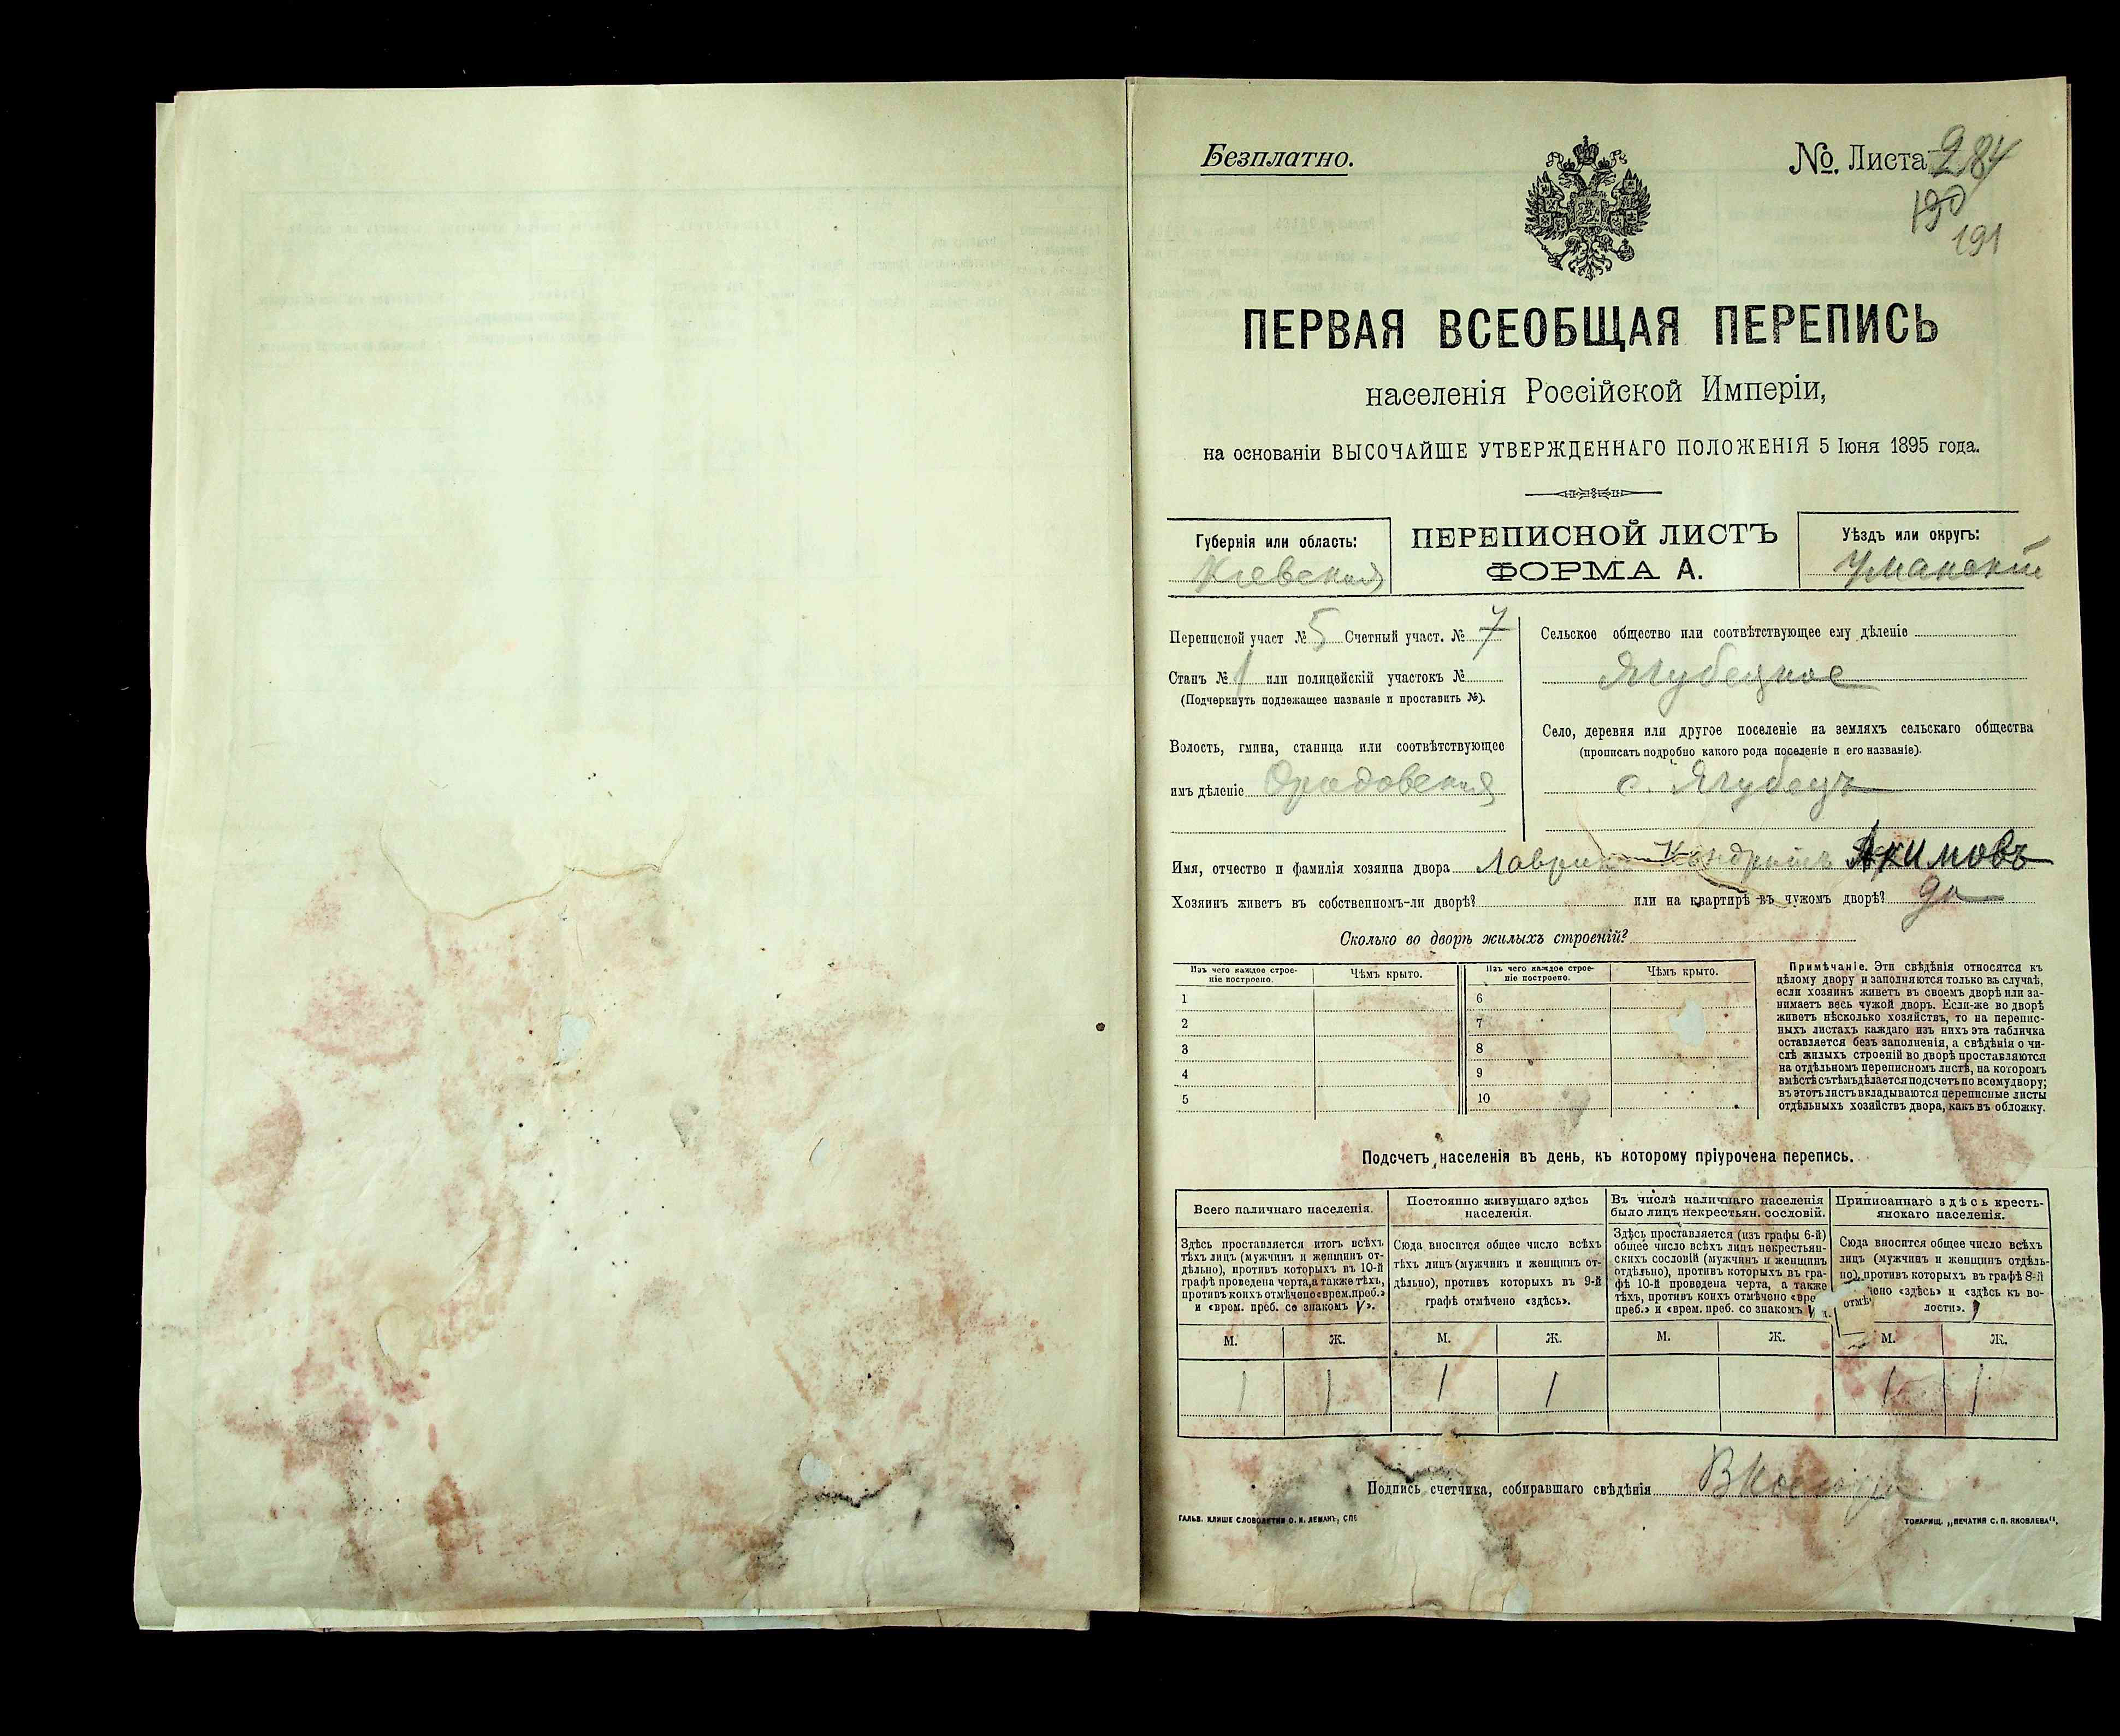 Безплатно.
№. Листа 284
190
191
ПЕРВАЯ ВСЕОБЩАЯ ПЕРЕПИСЬ
населенія Россійской Имперіи,
на основаніи ВЫСОЧАЙШЕ УТВЕРЖДЕННАГО ПОЛОЖЕНІЯ 5 Іюня 1895 года.
Губернія или область:
Кіевская
ПЕРЕПИСНОЙ ЛИСТЪ
ФОРМА А.
Уѣздъ или округъ:
Уманскій
Переписной участ № 5 Счетный участ. № 7
Станъ № 1 или полицейскій участокъ №
(Подчеркнуть подлежащее названіе и проставить №).
Волость, гмина, станица или соотвѣтствующее
имъ дѣленіе Орадовская
Сельское общество или соотвѣтствующее ему дѣленіе
Ягубецкое
Село, деревня или другое поселеніе на земляхъ сельскаго общества
(прописать подробно какого рода поселеніе и его названіе).
с. Ягубецъ
Имя, отчество и фамилія хозяина двора Кондратъ Акимовъ
Хозяинъ живетъ въ собственномъ-ли дворѣ? или на квартирѣ въ чужомъ дворѣ? да
Сколько во дворѣ жилыхъ строеній?
Изъ чего каждое строе-
ніе построено.
Чѣмъ крыто.
Изъ чего каждое строе-
ніе построено.
Чѣмъ крыто.
1
2
3
4
5
6
7
8
9
10
Примѣчаніе. Эти свѣдѣнія относятся къ
цѣлому двору и заполняются только въ случаѣ,
если хозяинъ живетъ въ своемъ дворѣ или за-
нимаетъ весь чужой дворъ. Если-же во дворѣ
живетъ нѣсколько хозяйствъ, то на перепис-
ныхъ листахъ каждаго изъ нихъ эта табличка
оставляется безъ заполненія, а свѣдѣнія о чи-
слѣ жилыхъ строеній во дворѣ проставляются
на отдѣльномъ переписномъ листѣ, на которомъ
вмѣстѣ съ тѣмъ дѣлается подсчетъ по всему двору;
въ этотъ листъ вкладываются переписные листы
отдѣльныхъ хозяйствъ двора, какъ въ обложку.
Подсчетъ населенія въ день, къ которому пріурочена перепись.
Всего наличнаго населенія.
Здѣсь проставляется итогъ всѣхъ
тѣхъ лицъ (мужчинъ и женщинъ от-
дѣльно), противъ которыхъ въ 10-й
графѣ проведена черта, а также тѣхъ,
противъ коихъ отмѣчено «врем. преб.»
и «врем. преб. со знакомъ V».
М. Ж.
1 1
Постоянно живущаго здѣсь
населенія.
Сюда вносится общее число всѣхъ
тѣхъ лицъ (мужчинъ и женщинъ от-
дѣльно), противъ которыхъ въ 9-й
графѣ отмѣчено «здѣсь».
М. Ж.
1 1
Въ числѣ наличнаго населенія
было лицъ некрестьян. сословій.
Здѣсь проставляется (изъ графы 6-й)
общее число всѣхъ лицъ некрестьян-
скихъ сословій (мужчинъ и женщинъ
отдѣльно), противъ которыхъ въ гра-
фѣ 10-й проведена черта, а также
тѣхъ, противъ коихъ отмѣчено «вре
преб.» и «врем. преб. со знакомъ V
М. Ж.
Приписаннаго здѣсь кресть-
янскаго населенія.
Сюда вносится общее число всѣхъ
лицъ (мужчинъ и женщинъ отдѣль-
но), противъ которыхъ въ графѣ 8-й
отмѣчено «здѣсь» и «здѣсь къ во-
лости».
М. Ж.
1 1
Подпись счетчика, собиравшаго свѣдѣнія
ГАЛЬВ. КЛИШЕ СЛОВОЛИТНИ О. И. ЛЕМАНЪ, СПБ
ТОВАРИЩ. „ПЕЧАТНЯ С. П. ЯКОВЛЕВА“.